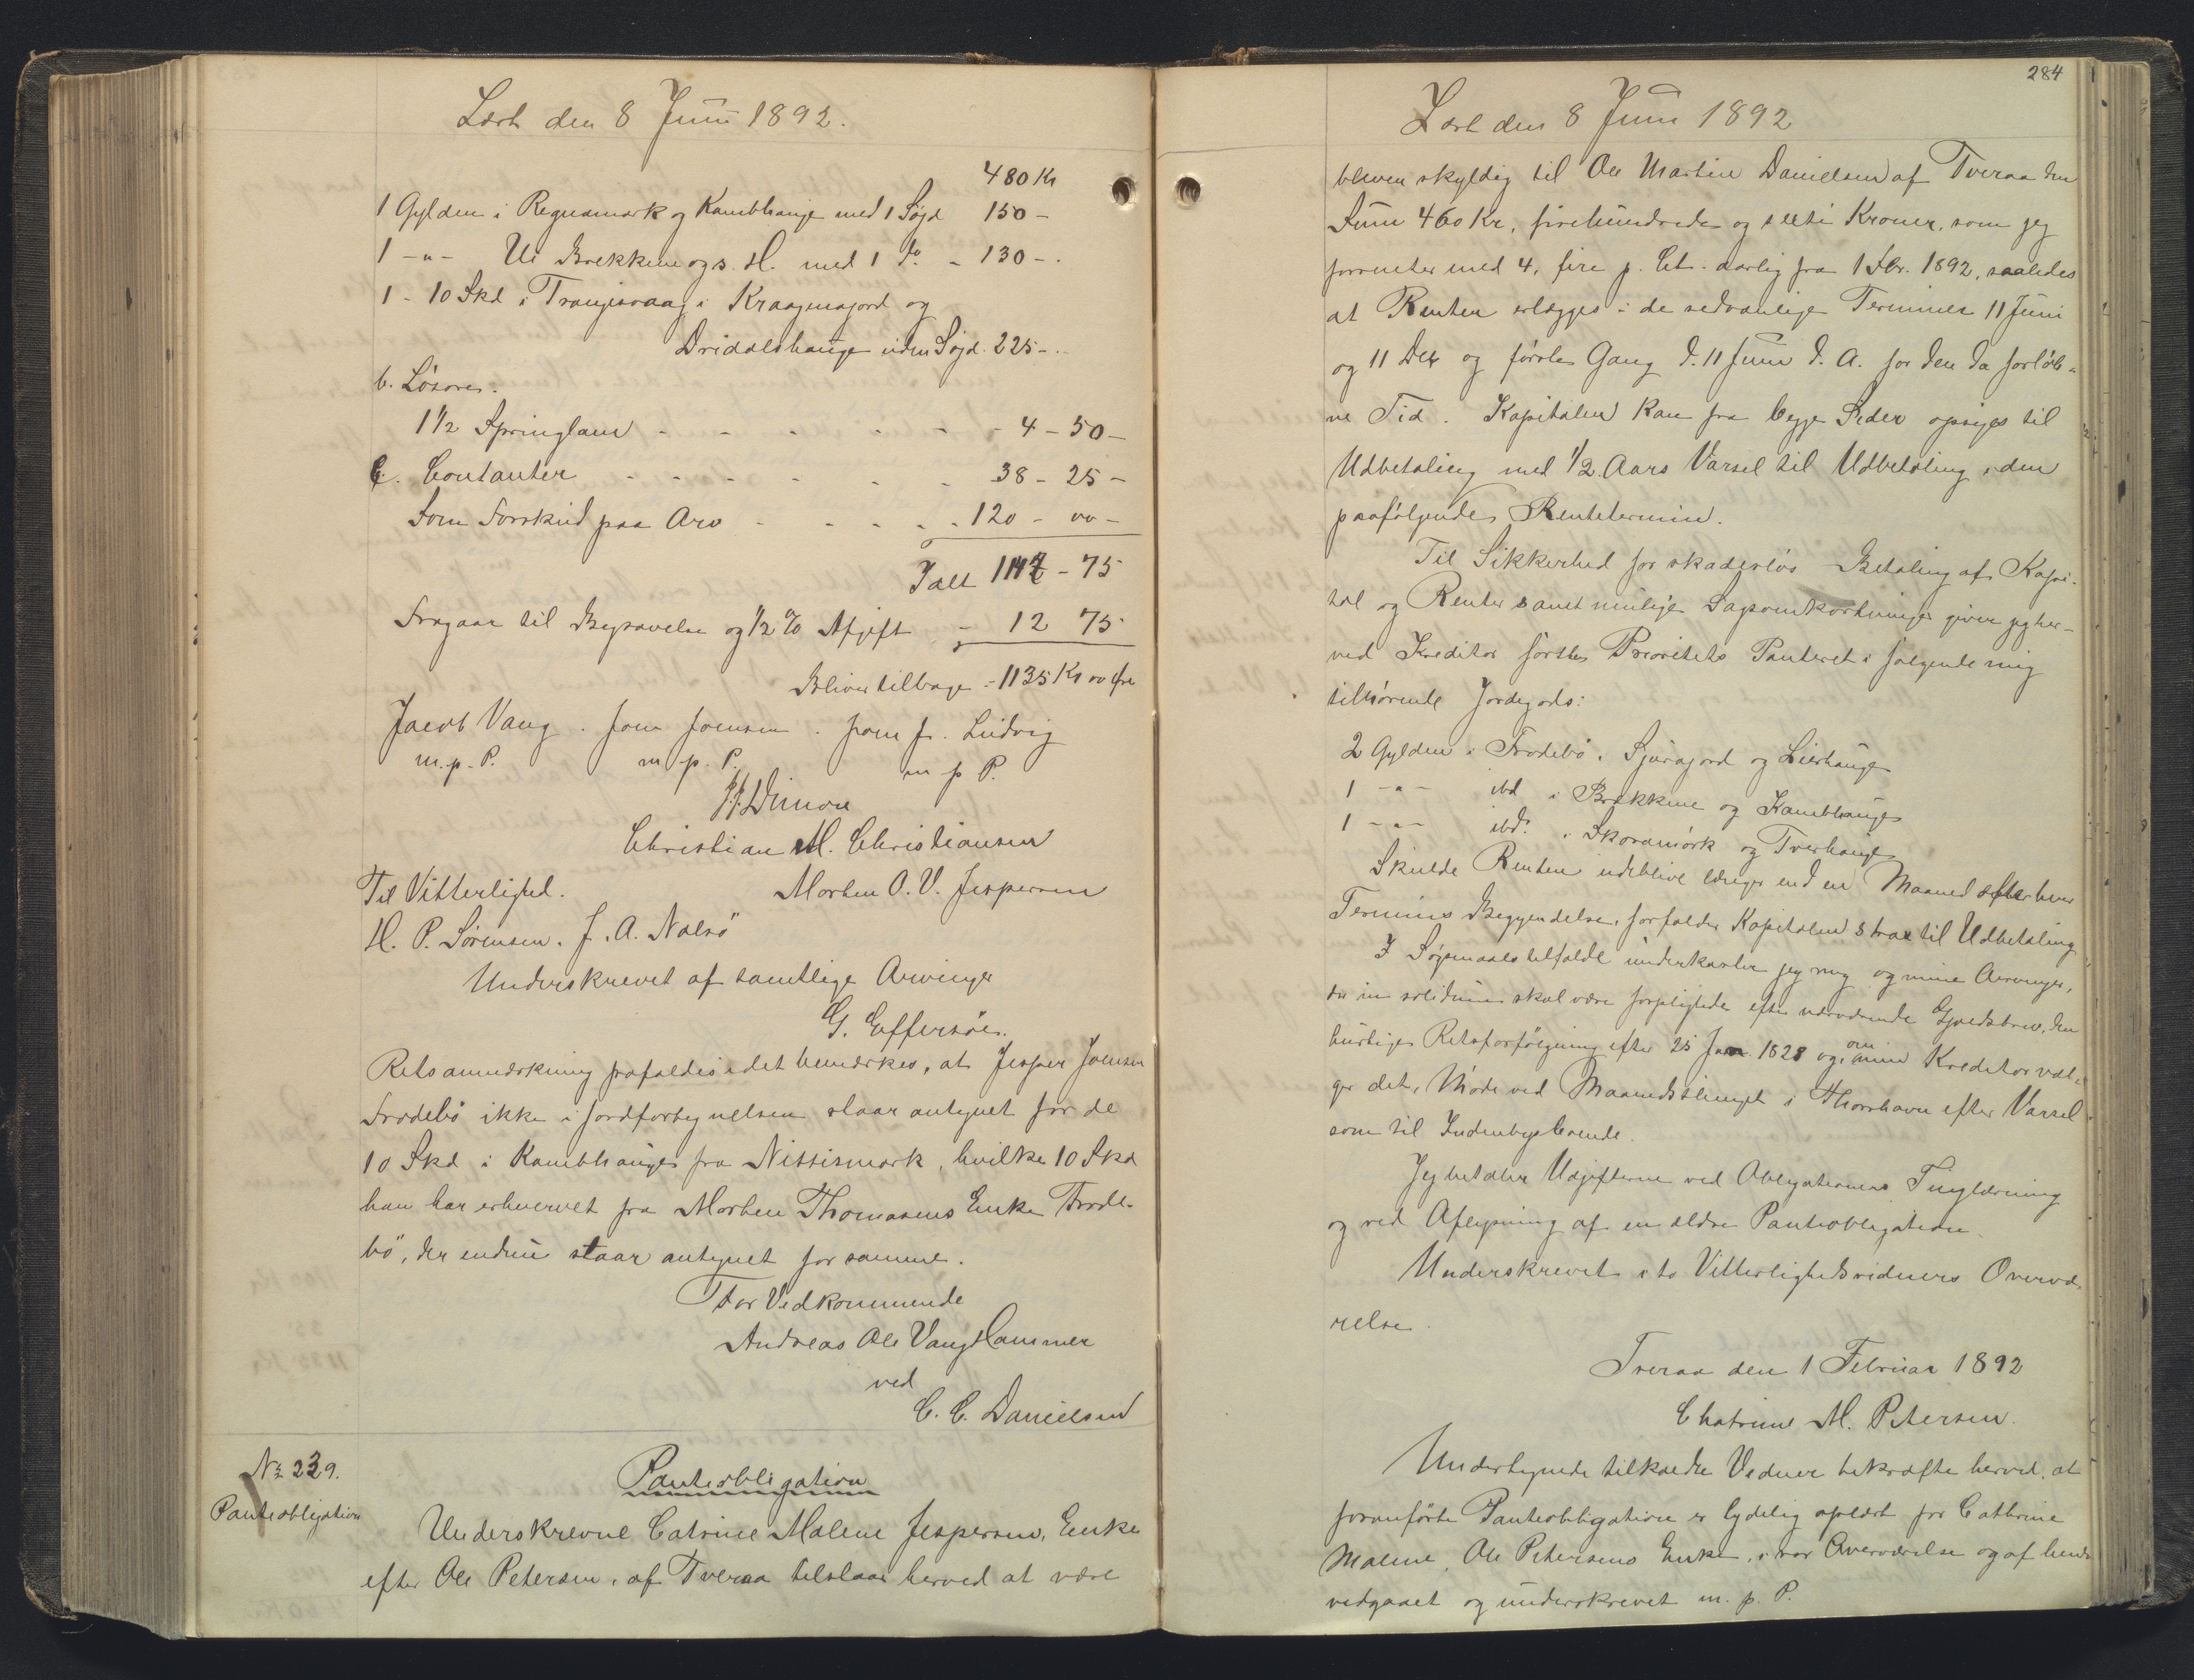 Læst den 8 Juni 1892.
480 Kr
1 Gylden i Regnamørk og Kambhauge med 1 Søjd 150 -
1 -"- Ui Brekkene og s. H. med 1 do - 130 -
1 - 10 Skd i Trangisvaag i Kraagengjord og
Dridalshauge uden Søjd. 225 -
b. Løsøre.
1 1/2 Springlam - - - - - - 4 - 50 -
C. Contanter - - - - - - 38 - 25 -
Som Forskud paa Arv - - - - - 120 - 00 -
Ialt 1147 - 75
Fragaar til Begravelse og 1/2 % Afgift - 12 75
Bliver tilbage - 1135 Kr 00 Øre
Jacob Vang. Joen Joensen. Joen J. Ludvig
m. p. P. m. p. P. m p P.
Christian M. Christiansen
Til Vitterlighed. Morten O. V. Jespersen
H. P. Sørensen. J. A. Nolsö
Underskrevet af samtlige Arvinger
G. Effersøe.
Retsanmærkning frafaldes idet bemærkes, at Jesper Joensen
Frodebø ikke i Jordfortegnelsen staar antegnet for de
10 Skd i Kambhauge fra Nissismørk, hvilke 10 Skd
han har erhvervet fra Morten Thomasens Enke Frode-
bö, der endnu staar antegnet for samme.
For Vedkommende
Andreas Ole Vang Hammer
ved
C. C. Danielsen
No 229.
Panteobligation
Panteobligation
Underskrevne Catrine Malene Jespersen, Enke
efter Ole Petersen, af Tveraa tilstaar herved at være
284
Læst den 8 Juni 1892
bleven skyldig til Ole Martin Danielsen af Tveraa den
Sum 460 Kr, firehundrede og sexti Kroner, som jeg
forrenter med 4, fire p. Ct. aarlig fra 1 Fbr. 1892, saaledes
at Renten erlægges i de sedvanlige Terminer 11 Juni
og 11 Dcbr og første Gang d. 11 Juni d. A. for den da forløb-
ne Tid. Kapitalen kan fra begge Sider opsiges til
Udbetaling med 1/2 Aars Varsel til Udbetaling i den
paafølgende Rentetermin.
Til Sikkerhed for skadesløs Betaling af Kapi-
tal og Renter samt mulige Sagsomkostninger giver jeg her-
ved Kreditor første Prioritets Panteret i følgende mig
tilhørende Jordegods:
2 Gylden i Frodebø i Sjuragjord og Lierhauge
1 -"- ibd i Brekkene og Kambhauge
1 -"- ibd. i Skoramørk og Tverhauge
Skulde Renten udeblive længer end en Maaned efter hver
Termins Begyndelse, forfalder Kapitalen strax til Udbetaling
I Søgsmaalstilfælde underkaster jeg mig og mine Arvinger,
der in solidum skal være forpligtede efter nærværende Gjældsbrev, den
hurtige Retsforfølgning efter 25 Jan. 1828 og, om min Kreditor væl-
ger det, Møde ved Maanedstinget i Thorshavn efter Varsel
som til Indenbysboende.
Jeg betaler Udgifterne ved Obligationens Tinglæsning
og ved Aflysning af en ældre Panteobligation.
Underskrevet i to Vitterlighedsvidners Overvæ-
relse.
Tveraa den 1 Februar 1892
Chatrine M. Petersen.
Undertegnede tilkaldte Vidner bekræfte herved, at
foranførte Panteobligation er lydelig oplæst for Cathrine
Malene, Ole Petersens Enke, i vor Overværelse og af hende
vedgaaet og underskrevet m. p. P.